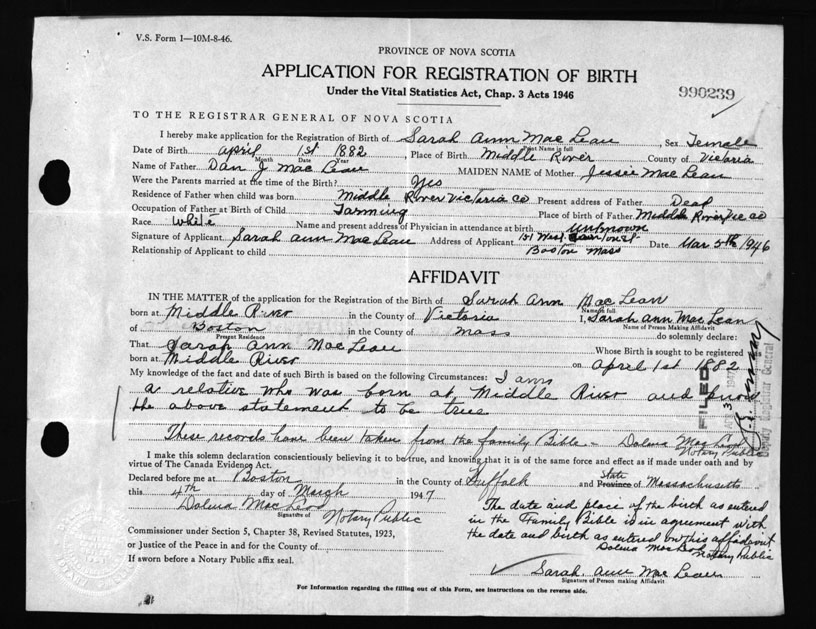 V.S. Form 1—10M-8-46.
PROVINCE OF NOVA SCOTIA
APPLICATION FOR REGISTRATION OF BIRTH
Under the Vital Statistics Act, Chap. 3 Acts 1946
990239
TO THE REGISTRAR GENERAL OF NOVA SCOTIA
I hereby make application for the Registration of Birth of Sarah Ann Mac Lean, Sex Female
Print Name in full
Date of Birth April 1st 1882, Place of Birth Middle River County of Victoria
Month Date Year
Name of Father Dan J Mac Lean MAIDEN NAME of Mother Jessie Mac Lean
Were the Parents married at the time of the Birth? Yes
Residence of Father when child was born Middle River Victoria Co Present address of Father Dead
Occupation of Father at Birth of Child Farming Place of birth of Father Middle River Vic co
Race White Name and present address of Physician in attendance at birth Unknown
Signature of Applicant Sarah Ann MacLean Address of Applicant 151 West Date Mar 5th 1946
Relationship of Applicant to child Boston Mass
AFFIDAVIT
IN THE MATTER of the application for the Registration of Birth of Sarah Ann Mac Lean
Name in full
born at Middle River in the County of Victoria I, Sarah Ann Mac Lean
Name of Person Making Affidavit
of Boston in the County of Mass do solemnly declare:
Present Residence
That Sarah Ann Mac Lean Whose Birth is sought to be registered
born at Middle River on April 1st 1882
My knowledge of the fact and date of such Birth is based on the following Circumstances: I am
a relative who was born at Middle River and know
the above statement to be true
These records have been taken from the family Bible - Dolina Mac Leod
Notary Public
FILED
Deputy Registrar General
I make this solemn declaration conscientiously believing it to be true, and knowing that it is of the same force and effect as if made under oath and by
virtue of The Canada Evidence Act.
Declared before me at Boston in the County of Suffolk and State Province of Massachusetts
this 4th day of March 1947
Dolina Mac Leod
Signature of Notary Public
The date and place of the birth as entered
in the Family Bible is in agreement with
the date and birth as entered on this affidavit
Dolina MacLeod
Notary Public
Commissioner under Section 5, Chapter 38, Revised Statutes, 1923,
or Justice of the Peace in and for the County of
If sworn before a Notary Public affix seal.
Sarah Ann Mac Lean
Signature of Person making Affidavit
For Information regarding the filling out of this Form, see instructions on the reverse side.